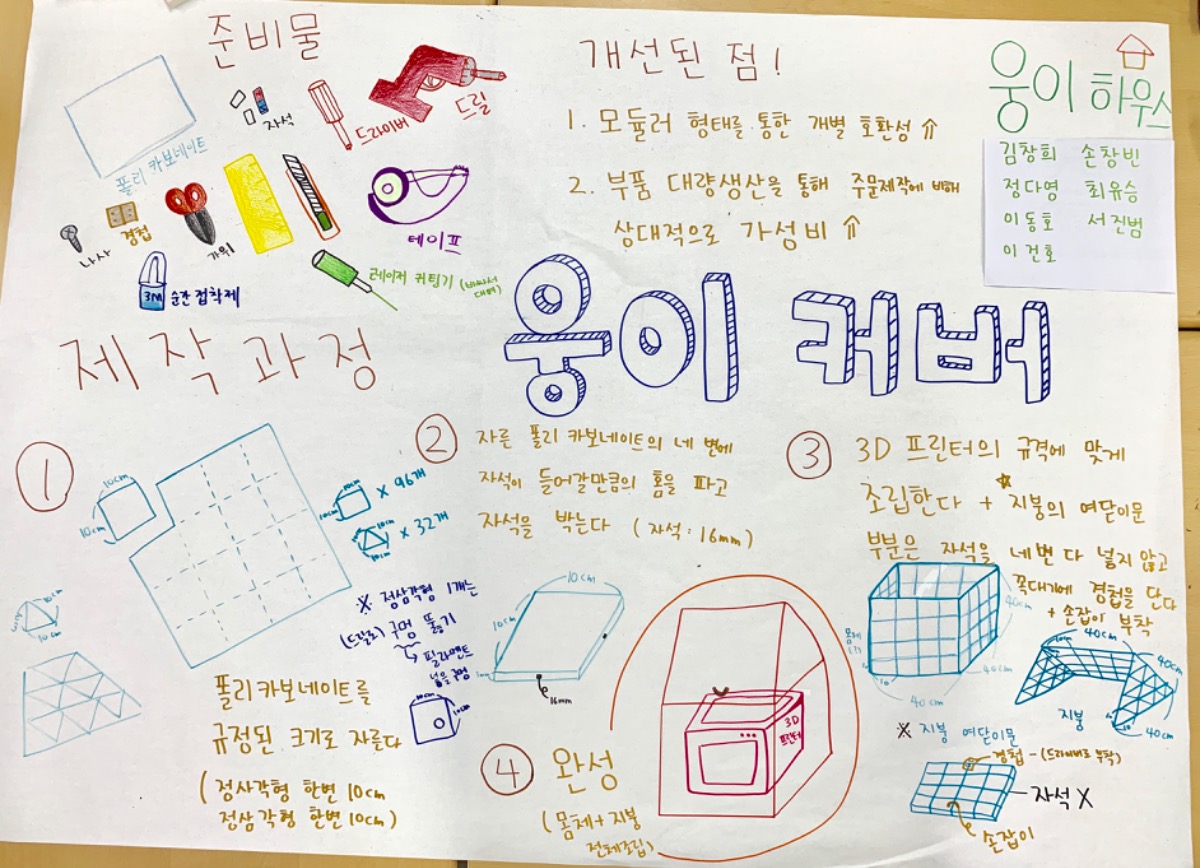 준비물
폴리카보네이트
자석
드라이버
드릴
나사
경첩
가위
테이프
3M
순간접착제
레이저 커팅기
개선된 점!
1. 모듈러 형태를 통한 개별 호환성 ⇑
2. 부품 대량생산을 통해 주문제작에 비해
상대적으로 가성비 ⇑
웅이 하우스
김창희 손창빈
정다영 최유승
이동호 서진범
이건호
웅이 커버
제작과정
①
10cm
10cm
10cm
10cm
× 96개
10cm
10cm
× 32개
10cm
10cm
※ 정삼각형 1개는
(드릴로) 구멍 뚫기
필라멘트
넣을 구멍
10cm
10cm
폴리카보네이트를
규정된 크기로 자른다
(정사각형 한변 10cm
정삼각형 한변 10cm)
②
자른 폴리카보네이트의 네 변에
자석이 들어갈만큼의 홈을 파고
자석을 박는다 (자석: 16mm)
10cm
10cm
16mm
③
3D 프린터의 규격에 맞게
조립한다 + ☆지붕의 여닫이문
부분은 자석을 네변 다 넣지 않고
꼭대기에 경첩을 단다
+ 손잡이 부착
몸체
40cm
40cm
40cm
40cm
40cm
40cm
40cm
지붕
※ 지붕 여닫이문
경첩 - (드라이버로 부착)
자석 X
손잡이
④ 완성
(몸체+지붕
전체조립)
3D
프린터